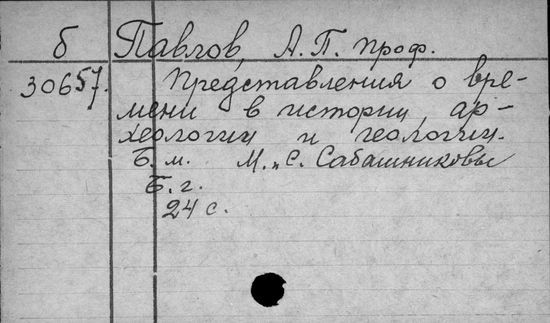 б Павлов, А. П. проф.
30657. Представления о вре-
мени в истории, ар-
хеологии и геологии.
Б. м. М. и С. Сабашниковы
Б. г.
24 с.